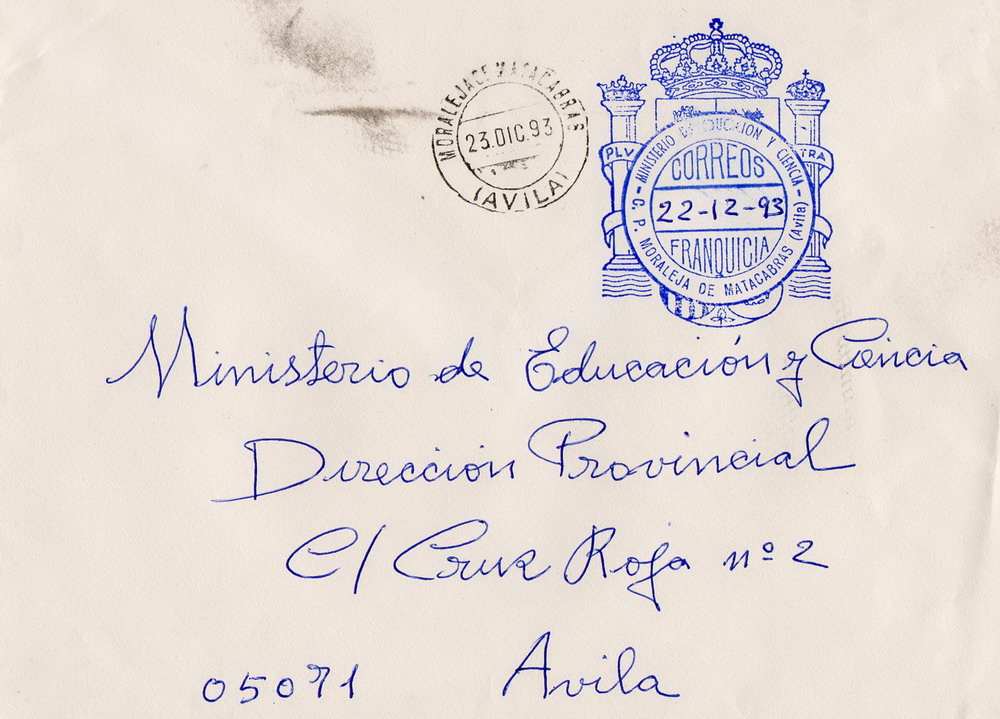 MORALEJA DE MATACABRAS
23.DIC.93
(AVILA)
PLV
TRA
MINISTERIO DE EDUCACION Y CIENCIA
CORREOS
22-12-93
FRANQUICIA
C. P. MORALEJA DE MATACABRAS (Avila)
Ministerio de Educación y Ciencia
Dirección Provincial
C/ Cruz Roja nº 2
05071 Avila